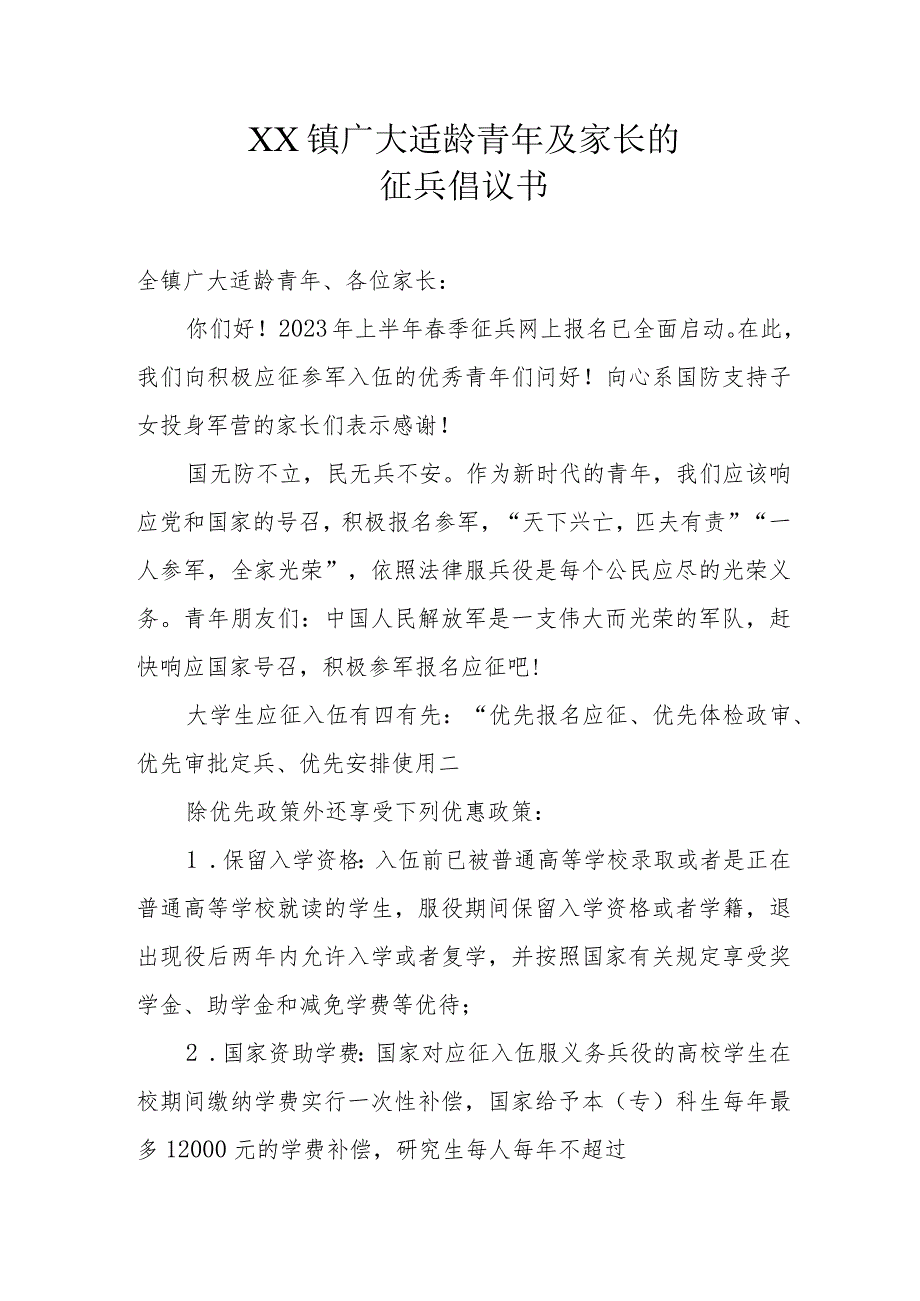 XX 镇广大适龄青年及家长的
征兵倡议书
全镇广大适龄青年、各位家长：
你们好！2023年上半年春季征兵网上报名已全面启动。在此，
我们向积极应征参军入伍的优秀青年们问好！向心系国防支持子
女投身军营的家长们表示感谢！
国无防不立，民无兵不安。作为新时代的青年，我们应该响
应党和国家的号召，积极报名参军，“天下兴亡，匹夫有责”“一
人参军，全家光荣”，依照法律服兵役是每个公民应尽的光荣义
务。青年朋友们：中国人民解放军是一支伟大而光荣的军队，赶
快响应国家号召，积极参军报名应征吧!
大学生应征入伍有四有先：“优先报名应征、优先体检政审、
优先审批定兵、优先安排使用二
除优先政策外还享受下列优惠政策：
1 .保留入学资格：入伍前已被普通高等学校录取或者是正在
普通高等学校就读的学生，服役期间保留入学资格或者学籍，退
出现役后两年内允许入学或者复学，并按照国家有关规定享受奖
学金、助学金和减免学费等优待；
2 .国家资助学费：国家对应征入伍服义务兵役的高校学生在
校期间缴纳学费实行一次性补偿，国家给予本（专）科生每年最
多 12000 元的学费补偿，研究生每人每年不超过